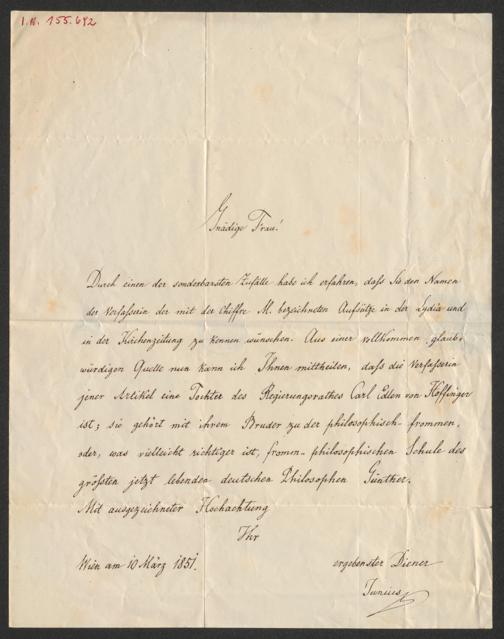 I.N. 155.642
Gnädige Frau!
Durch einen der sonderbarsten Zufälle habe ich erfahren, daß Sie den Namen
der Verfasserin der mit der Chiffre M. bezeichneten Aufsätze in der Lydia und
in der Kirchenzeitung zu kennen wünschen. Aus einer vollkommen glaub-
würdigen Quelle nun kann ich Ihnen mittheilen, daß die Verfasserin
jener Artikel eine Tochter des Regierungsrathes Carl Edlen von Höffinger
ist; sie gehört mit ihrem Bruder zu der philosophisch-frommen,
oder, was vielleicht richtiger ist, fromm-philosophischen Schule des
größten jetzt lebenden deutschen Philosophen Günther.
Mit ausgezeichneter Hochachtung
Ihr
Wien am 10 März 1851. ergebenster Diener
Junius